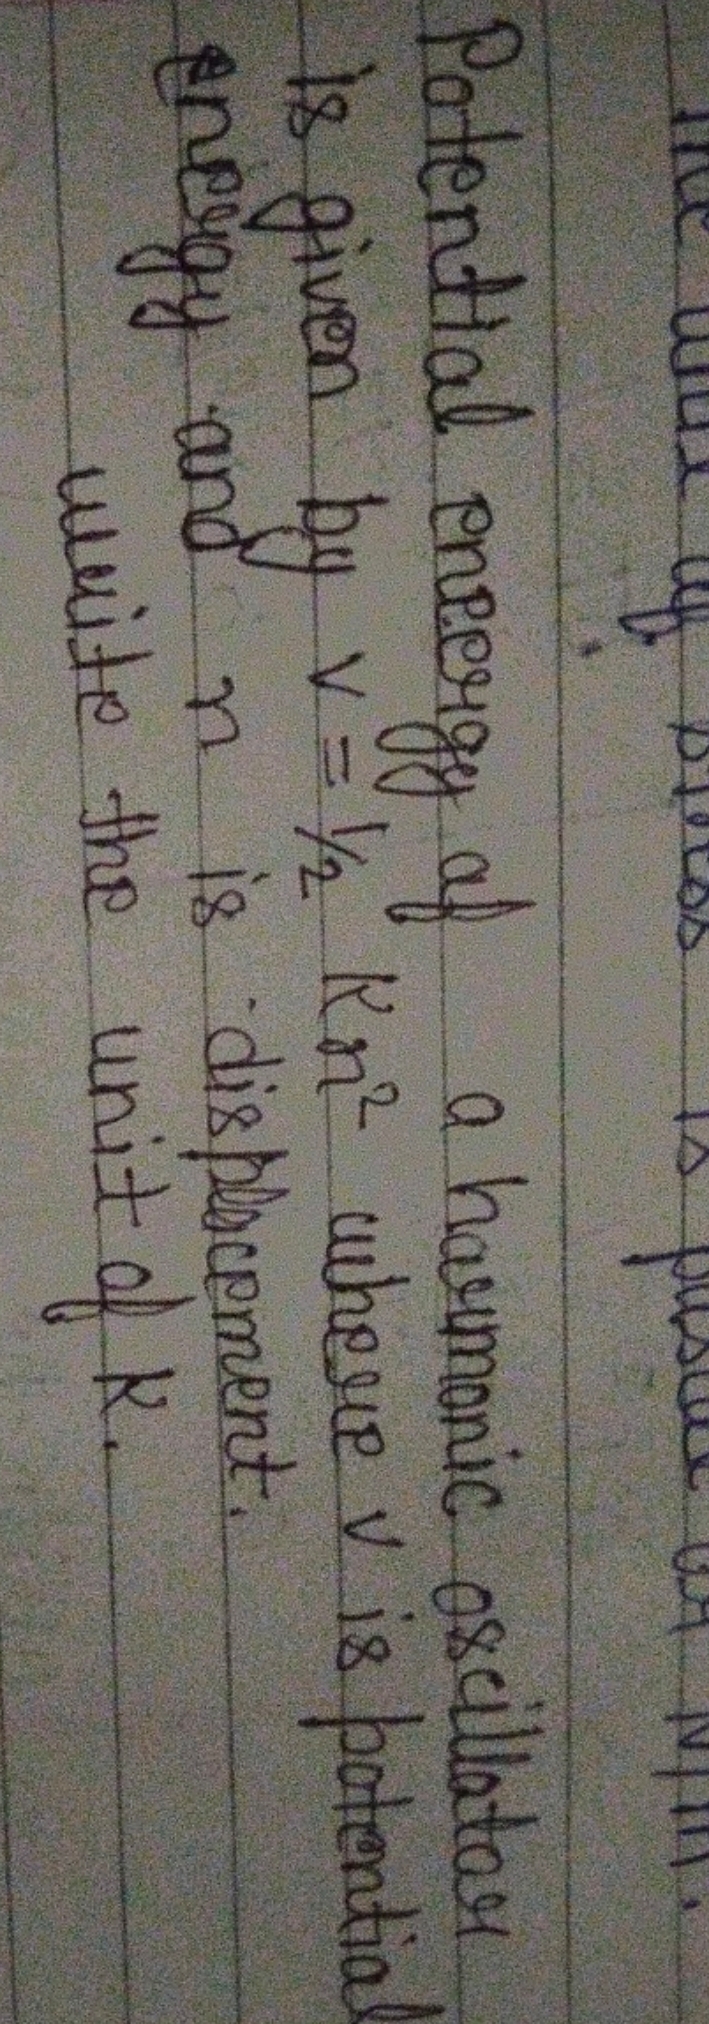 The unit of is as N/m.
Potential energy of a harmonic oscillator
is given by v = 1/2 kn² where v is potential
energy and n is displacement.
write the unit of k.